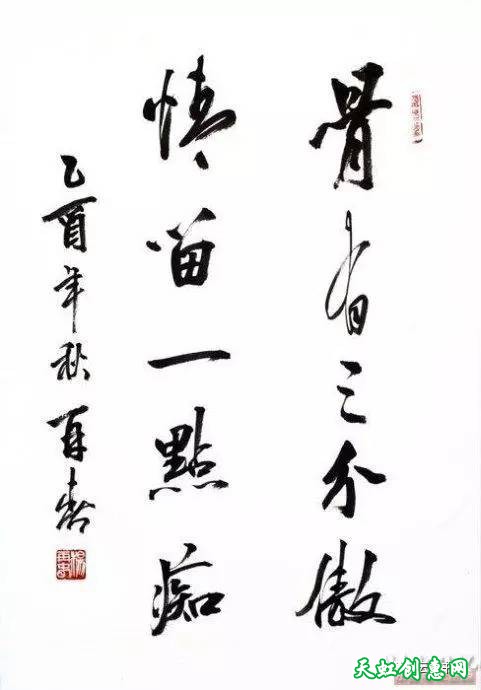 骨有三分傲
情留一點痴
乙酉年秋再春
天虹创意网